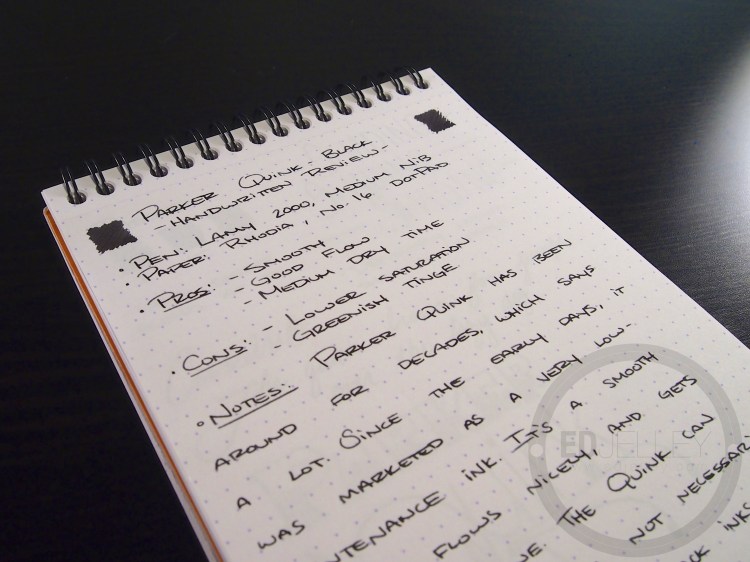 PARKER QUINK - BLACK
- HANDWRITTEN REVIEW -
• PEN: LAMY 2000, MEDIUM NIB
• PAPER: RHODIA, NO. 16 DOTPAD
• PROS: - SMOOTH
- GOOD FLOW
- MEDIUM DRY TIME
• CONS: - LOWER SATURATION
- GREENISH TINGE
• NOTES: PARKER QUINK HAS BEEN
AROUND FOR DECADES, WHICH SAYS
A LOT. SINCE THE EARLY DAYS, IT
WAS MARKETED AS A VERY LOW-
INK. IT'S A SMOOTH
FLOWS NICELY, AND GETS
THE QUINK CAN
NOT
INKS
EDJELLEY